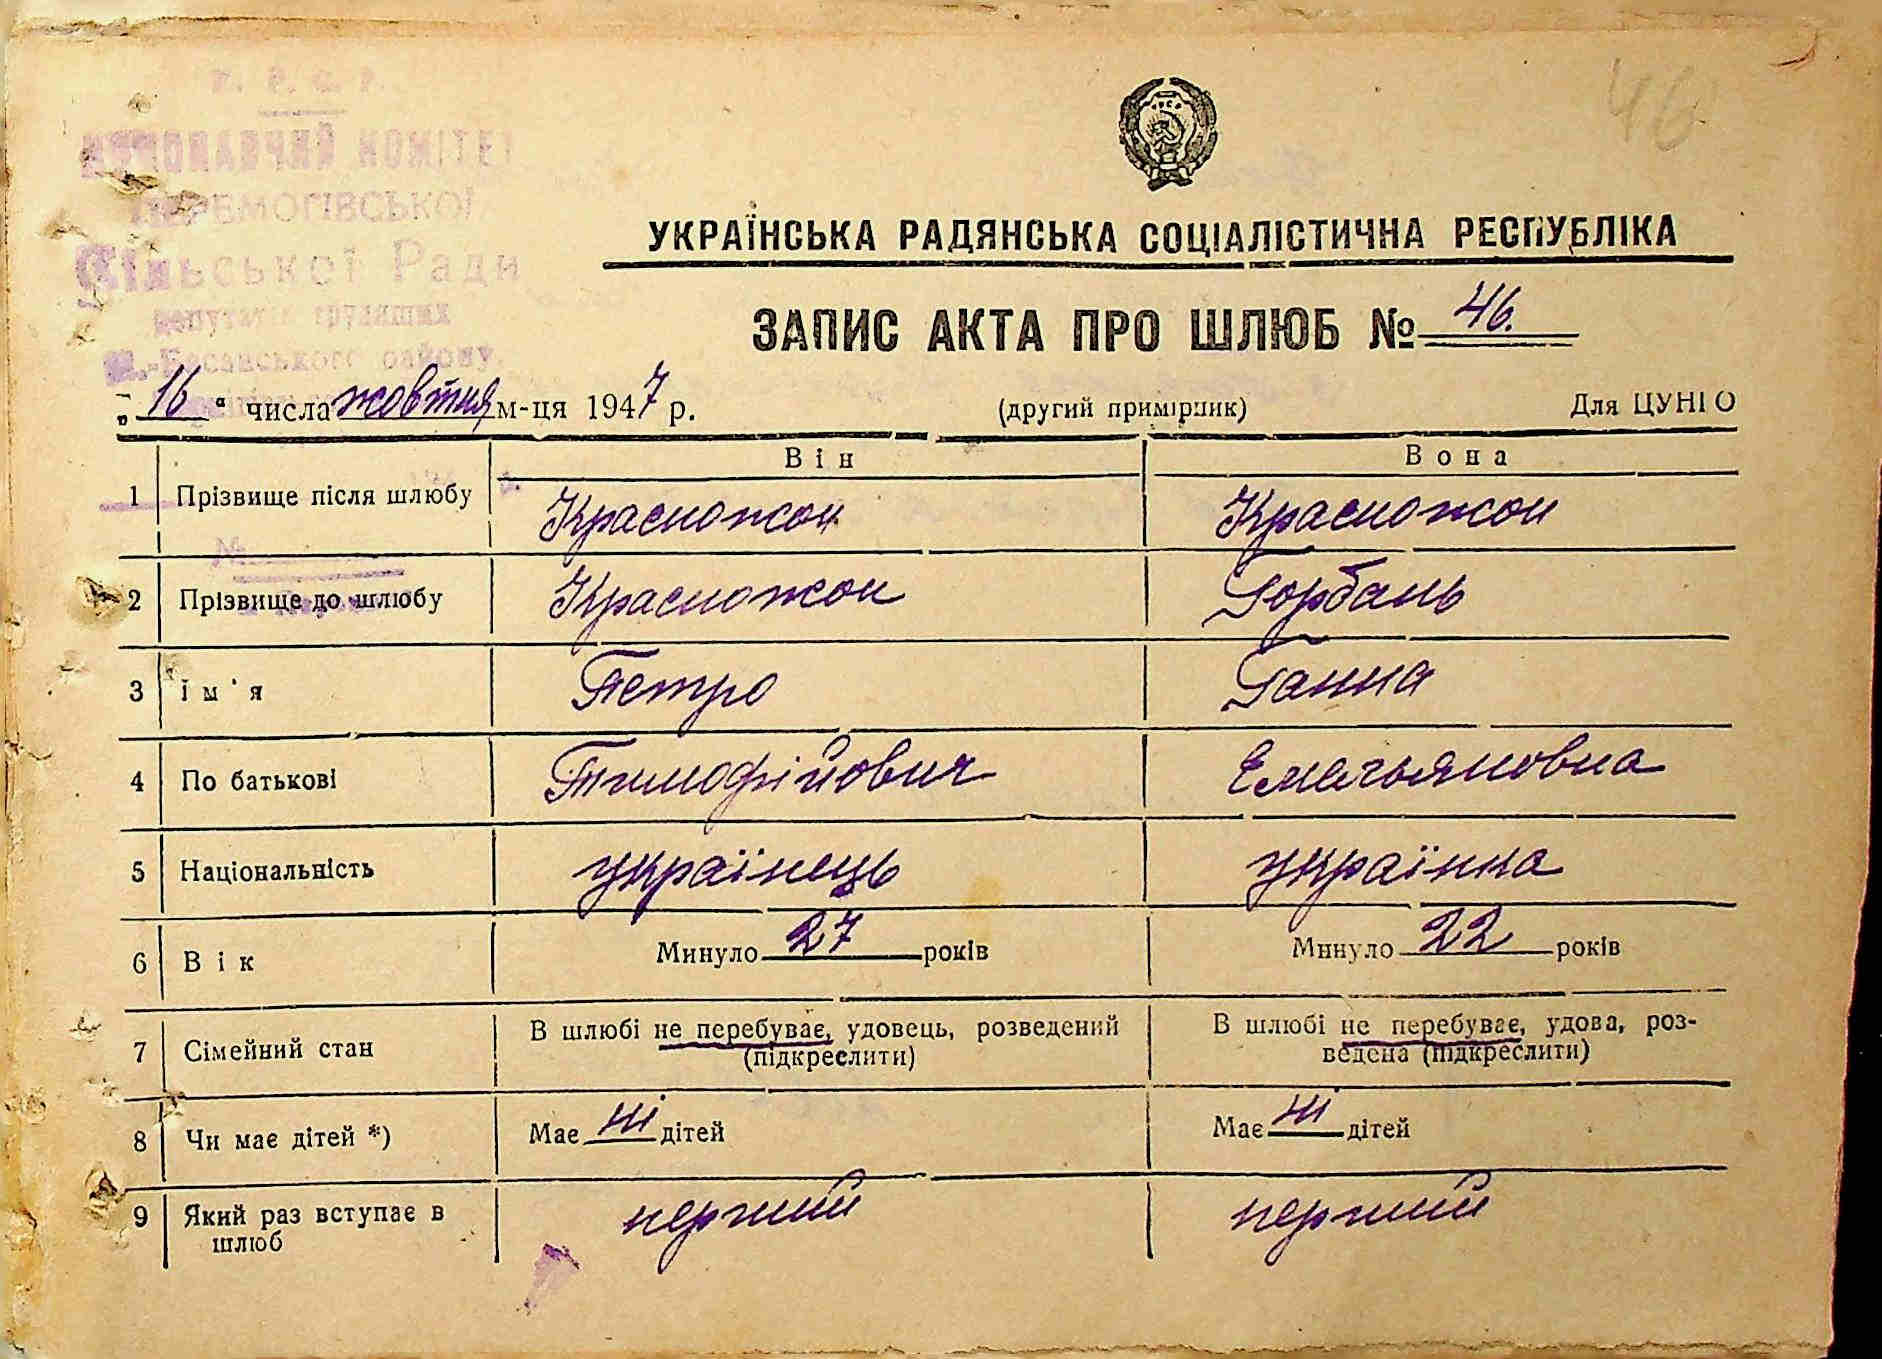 У. Р. С. Р.
46
ВИКОНАВЧИЙ КОМІТЕТ
ПЕРЕМОГІВСЬКОЇ
Сільської Ради
депутатів трудящих
Н.-Басанського району
УКРАЇНСЬКА РАДЯНСЬКА СОЦІАЛІСТИЧНА РЕСПУБЛІКА
ЗАПИС АКТА ПРО ШЛЮБ № 46.
„16“ числа жовтня м-ця 1947 р. (другий примірник) Для ЦУНГО
Він Вона
1 Прізвище після шлюбу Красножон Красножон
№
2 Прізвище до шлюбу Красножон Горбань
3 Ім'я Петро Ганна
4 По батькові Тимофійович Емельяновна
5 Національність українець українка
6 Вік Минуло 27 років Минуло 22 років
7 Сімейний стан В шлюбі не перебуває, удовець, розведений (підкреслити) В шлюбі не перебуває, удова, роз-
ведена (підкреслити)
8 Чи має дітей *) Має ні дітей Має ні дітей
9 Який раз вступає в шлюб перший перший